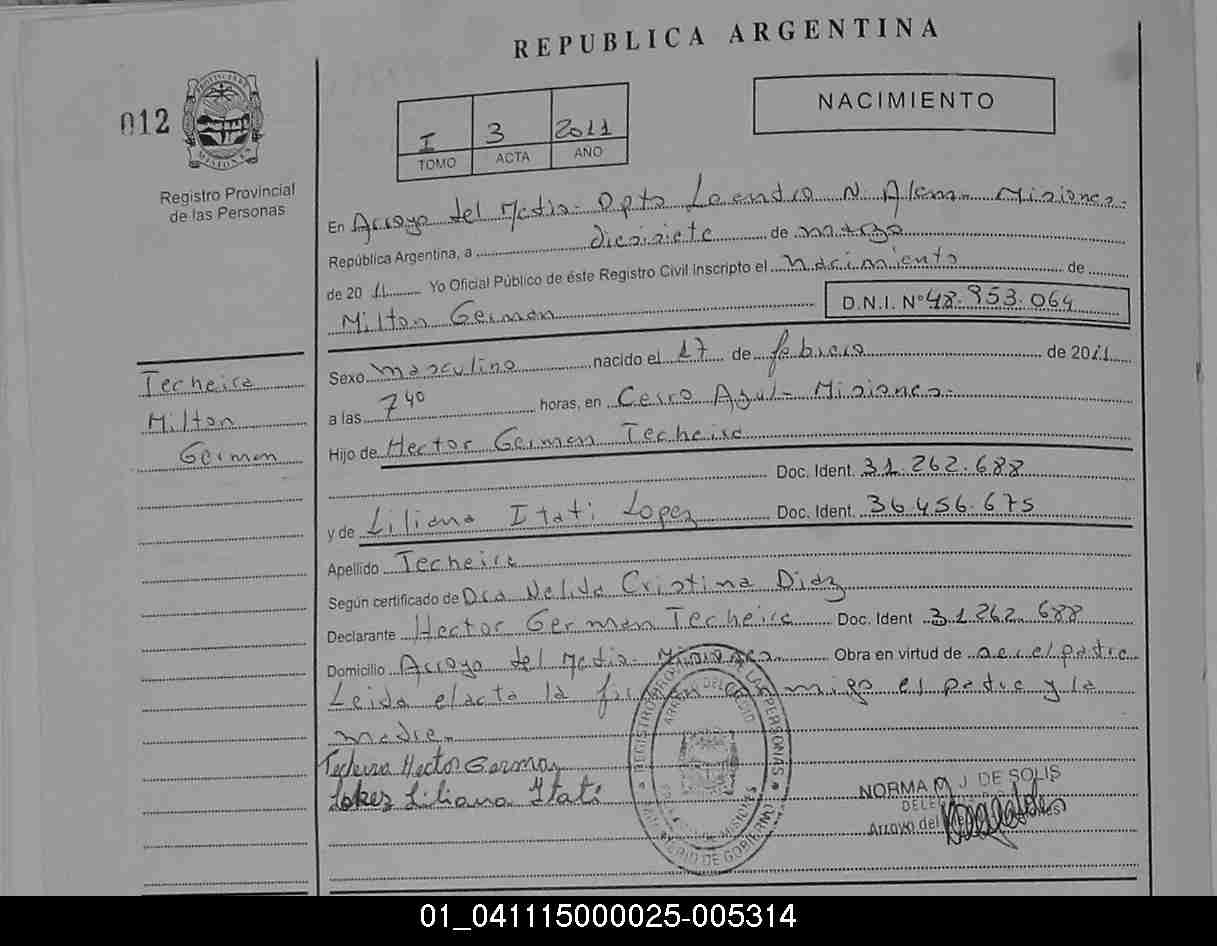 REPUBLICA ARGENTINA
012
PROVINCIA DE MISIONES
Registro Provincial
de las Personas
I 3 2011
TOMO ACTA AÑO
NACIMIENTO
En Arroyo del Medio - Dpto Leandro N. Alem - Misiones.
República Argentina, a diesisiete de marzo
de 2011 Yo Oficial Público de éste Registro Civil inscripto el nacimiento de
Milton German D.N.I. Nº 48.953.064
Techeira
Milton
German
Sexo masculino nacido el 17 de febrero de 2011
a las 7 40 horas, en Cerro Azul - Misiones.
Hijo de Hector German Techeira
Doc. Ident. 31.262.688
y de Liliana Itati Lopez Doc. Ident. 36.456.675
Apellido Techeira
Según certificado de Dra Nelida Cristina Diaz
Declarante Hector German Techeira Doc. Ident 31.262.688
Domicilio Arroyo del Medio - Misiones Obra en virtud de ser el padre
Leida el acta la firman conmigo el padre y la
madre.
Techeira Hector German
Lopez Liliana Itati
REGISTRO PROV. DE LAS PERSONAS
ARROYO DEL MEDIO
MISIONES
MINISTERIO DE GOBIERNO
NORMA J. DE SOLIS
Arroyo del
01_041115000025-005314